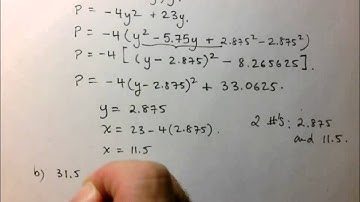 P = -4y² + 23y.
P = -4(y² - 5.75y + 2.875² - 2.875²)
P = -4[(y - 2.875)² - 8.265625].
P = -4(y - 2.875)² + 33.0625.
y = 2.875
x = 23 - 4(2.875).
x = 11.5
2 #'s: 2.875
and 11.5.
b) 31.5